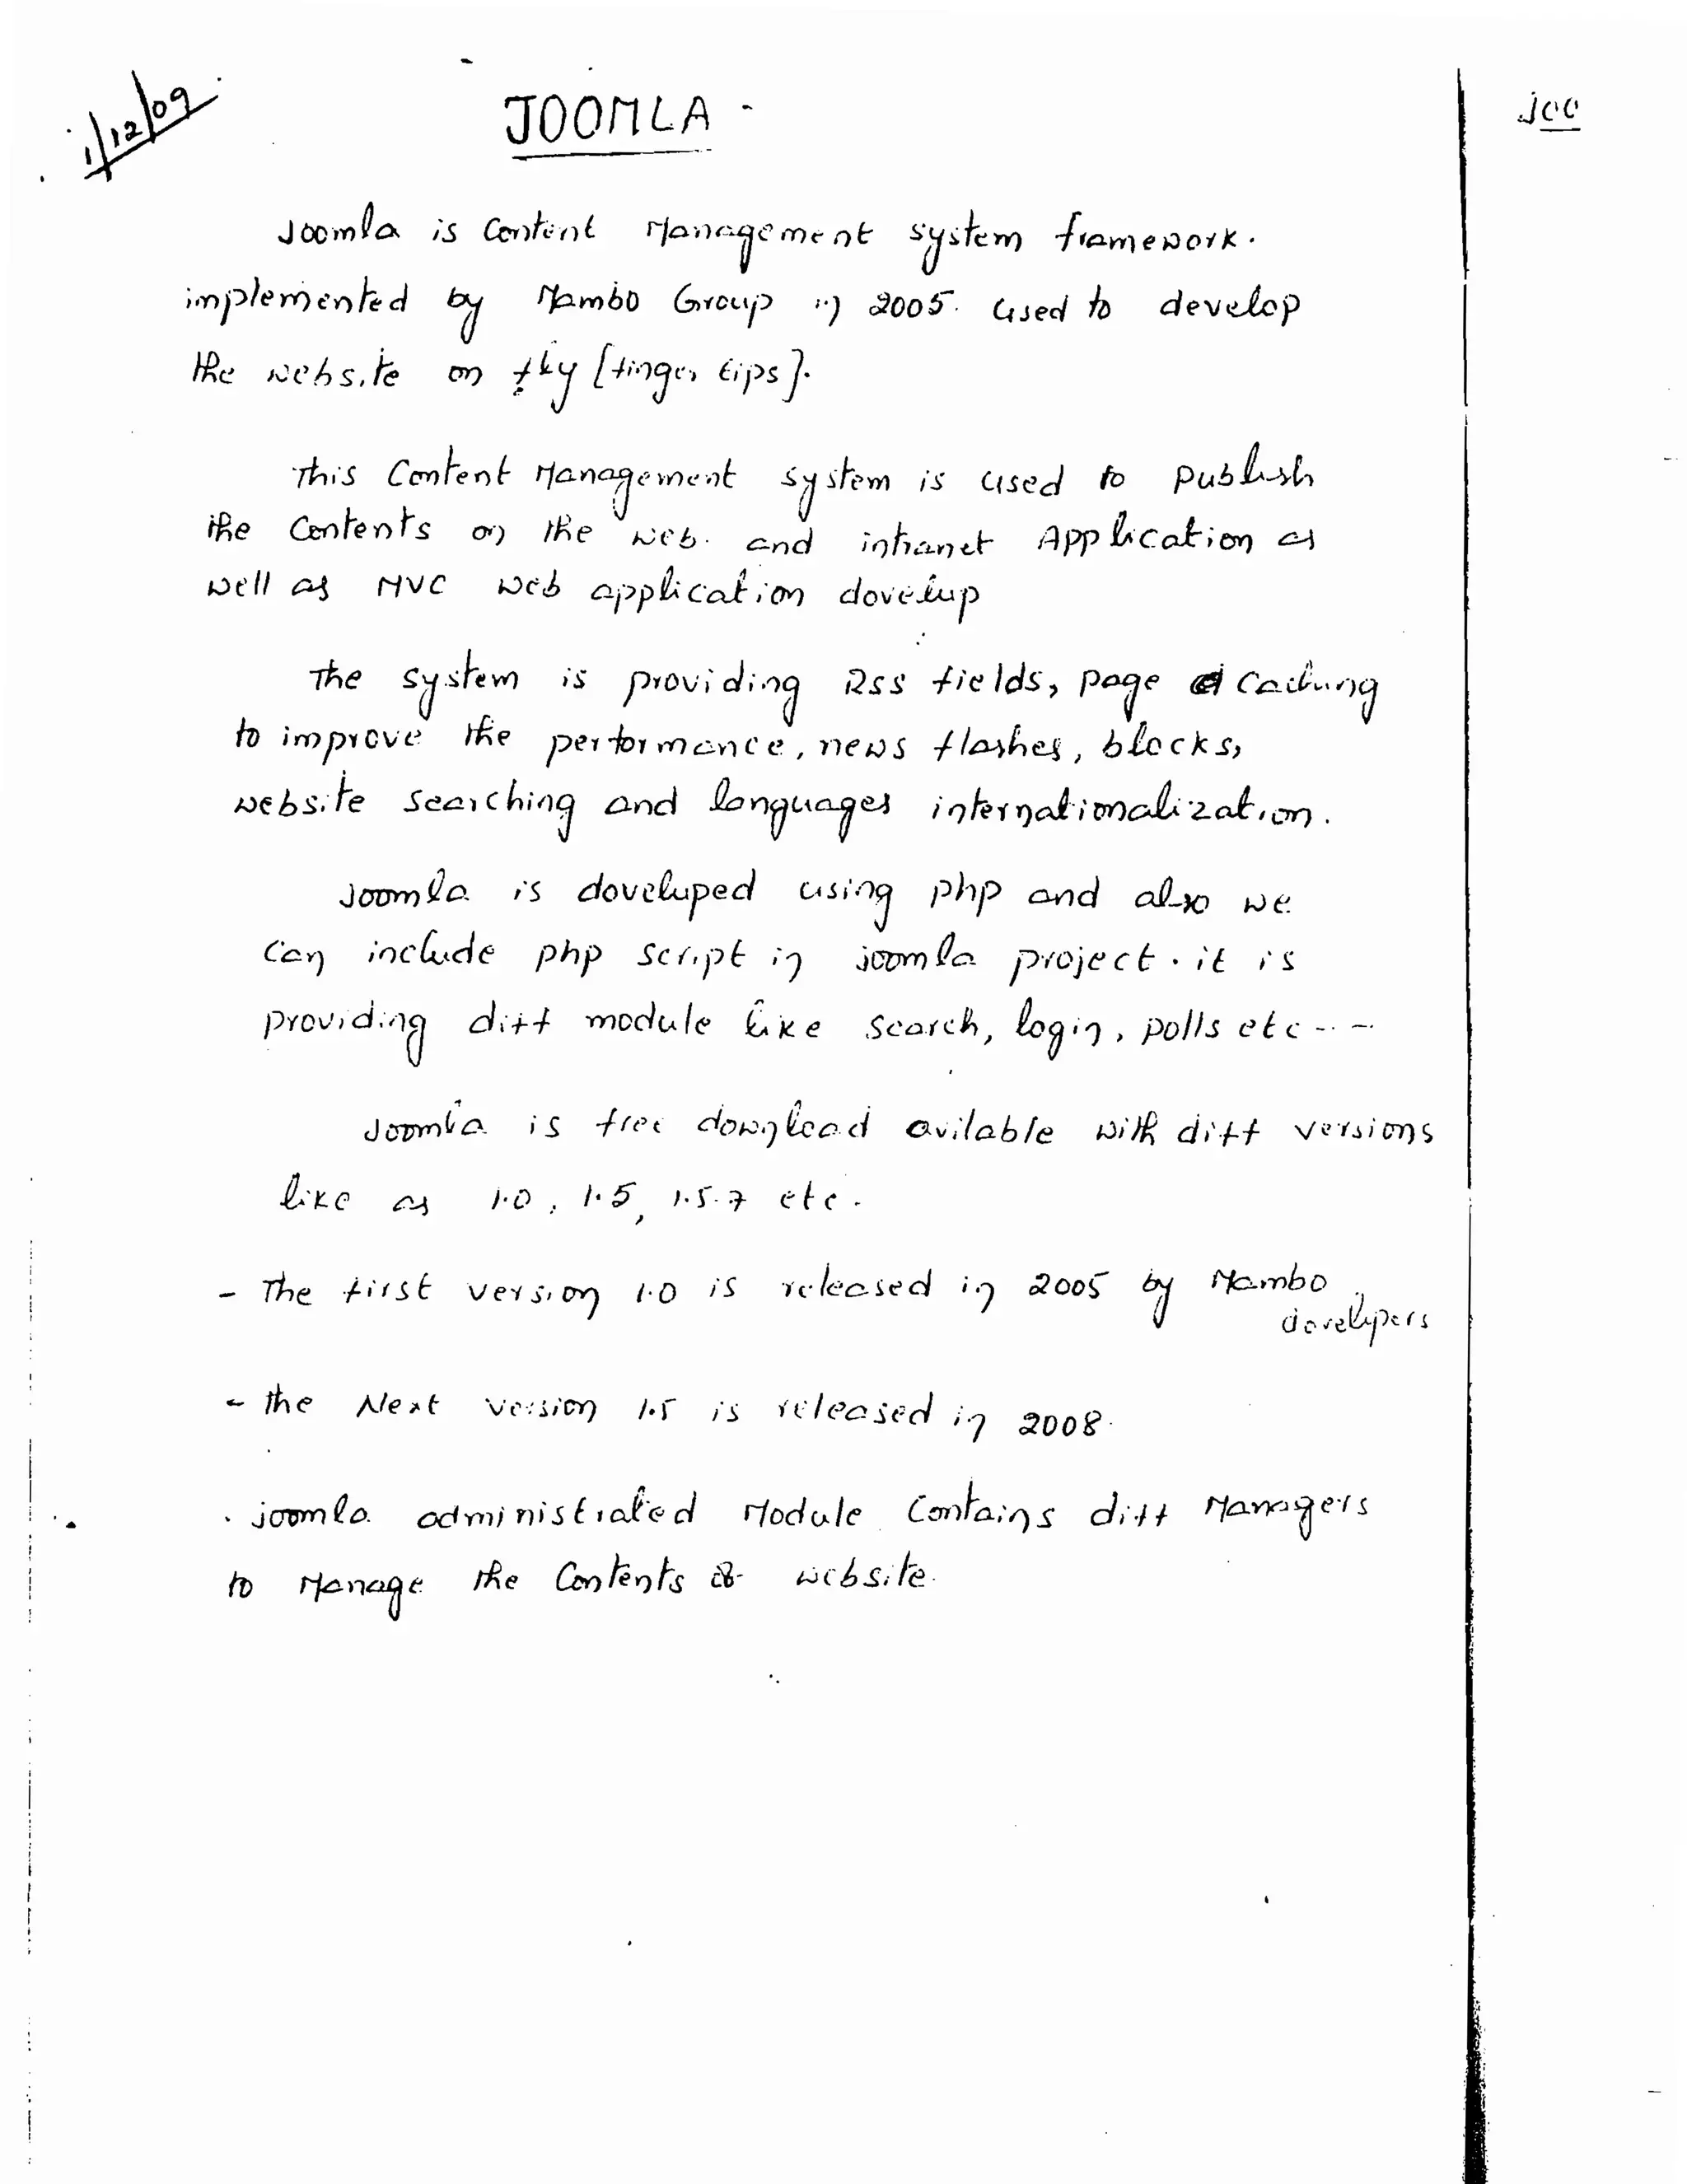 1/12/09
JOOMLA
Joo
Joomla is Content Management system framework.
implemented by Mambo Group in 2005. Used to develop
the website on fly [finger tips].
This Content Management system is used to publish
the Contents on the web. and intranet Application as
well as MVC web application dovelup
The system is providing RSS fields, page caching
to improve the performance, news flashes, blocks,
website searching and languages internationalization.
Joomla is doveluped using php and also we
can include php script in joomla project. it is
providing diff module like search, login, polls etc - - -
Joomla is free download avilable with diff versions
like as 1.0, 1.5, 1.5.7 etc.
- The first version 1.0 is released in 2005 by Mambo
dovelupers
- the Next version 1.5 is released in 2008.
. joomla administrated Module Contains diff Managers
to Manage the Contents website.